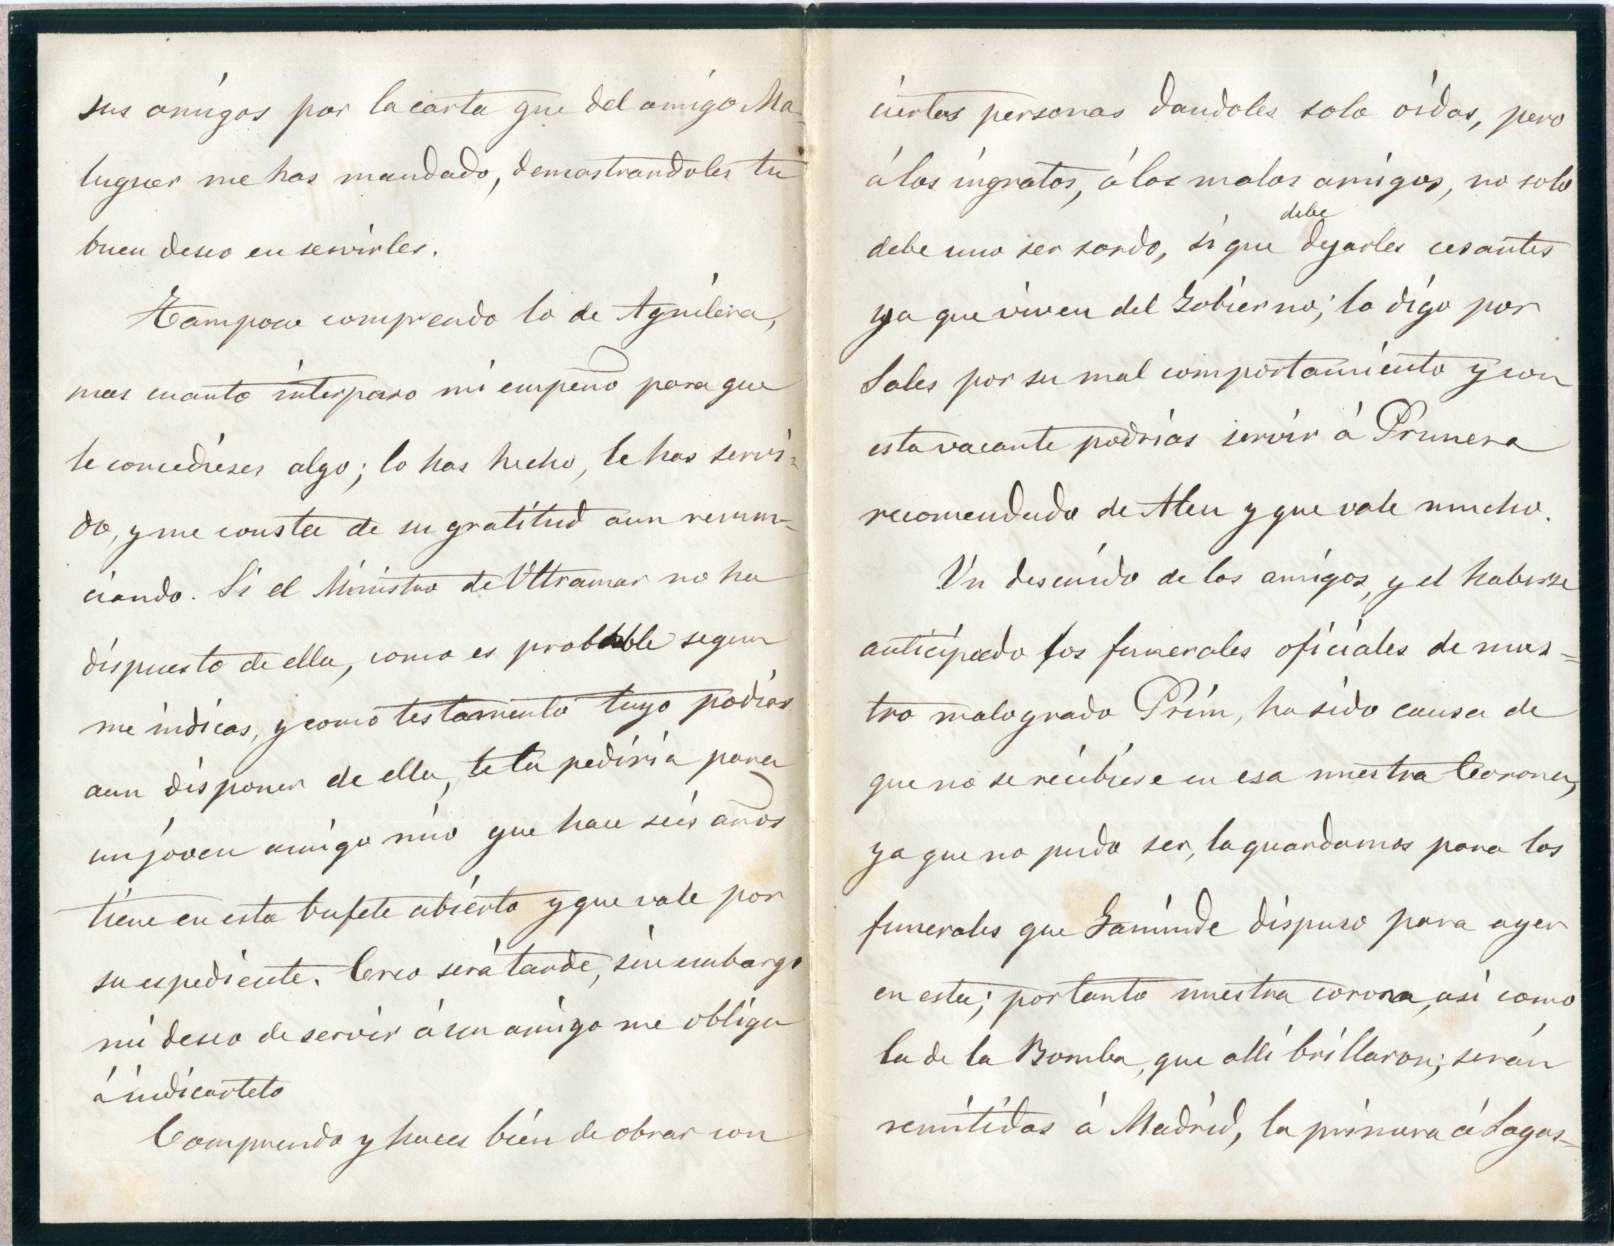 sus amigos por la carta que del amigo Ma-
luquer me has mandado, demostrandoles tu
buen deseo en servirles.
Tampoco comprendo lo de Aguilera,
mas cuanto interpuso mi empeño para que
le concedieses algo; lo has hecho, le has servi-
do, y me consta de su gratitud aun renun-
ciando. Si el Ministro de Ultramar no ha
dispuesto de ella, como es probable segun
me indicas, y como testamento tuyo podias
aun disponer de ella, te la pediria para
un jóven amigo mio que hace seis años
tiene en esta bufete abierto y que vale por
su espediente. Creo será tarde, sin embargo
mi deseo de servir á un amigo me obliga
á indicartelo
Comprendo y haces bien de obrar con
ciertas personas dandoles solo oidos, pero
á los ingratos, á los malos amigos, no solo
debe uno ser sordo, si que debe dejarles cesantes
ya que viven del Gobierno; lo digo por
Sales por su mal comportamiento y con
esta vacante podrias servir á Prunera
recomendado de Aleu y que vale mucho.
Un descuido de los amigos, y el haberse
anticipado los funerales oficiales de nues-
tro malogrado Prim, ha sido causa de
que no se recibiese en esa nuestra Corona,
ya que no pudo ser, la guardamos para los
funerales que Gaminde dispuso para ayer
en esta; por tanto nuestra corona, asi como
la de la Bomba, que alli brillaron; serán
remitidas á Madrid, la primera á Sagas-